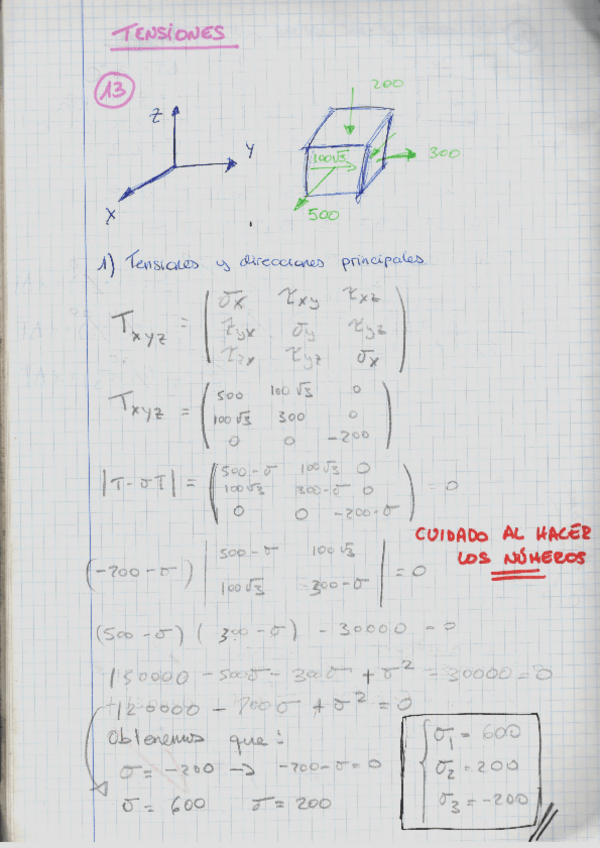 TENSIONES
13
200
Z
Y
X
100√3
300
500
1) Tensiones y direcciones principales
Txyz = ( σx τxy τxz
τyx σy τyz
τzx τyz σx )
Txyz = ( 500 100√3 0
100√3 300 0
0 0 -200 )
|T-σI| = ( 500-σ 100√3 0
100√3 300-σ 0
0 0 -200-σ ) = 0
CUIDADO AL HACER
LOS NÚMEROS
(-200-σ) | 500-σ 100√3
100√3 300-σ | = 0
(500-σ) (300-σ) - 30000 = 0
150000 - 500σ - 300σ + σ² - 30000 = 0
120000 - 800σ + σ² = 0
Obtenemos que:
σ = -200 → -200-σ = 0
σ = 600 σ = 200
σ1 = 600
σ2 = 200
σ3 = -200